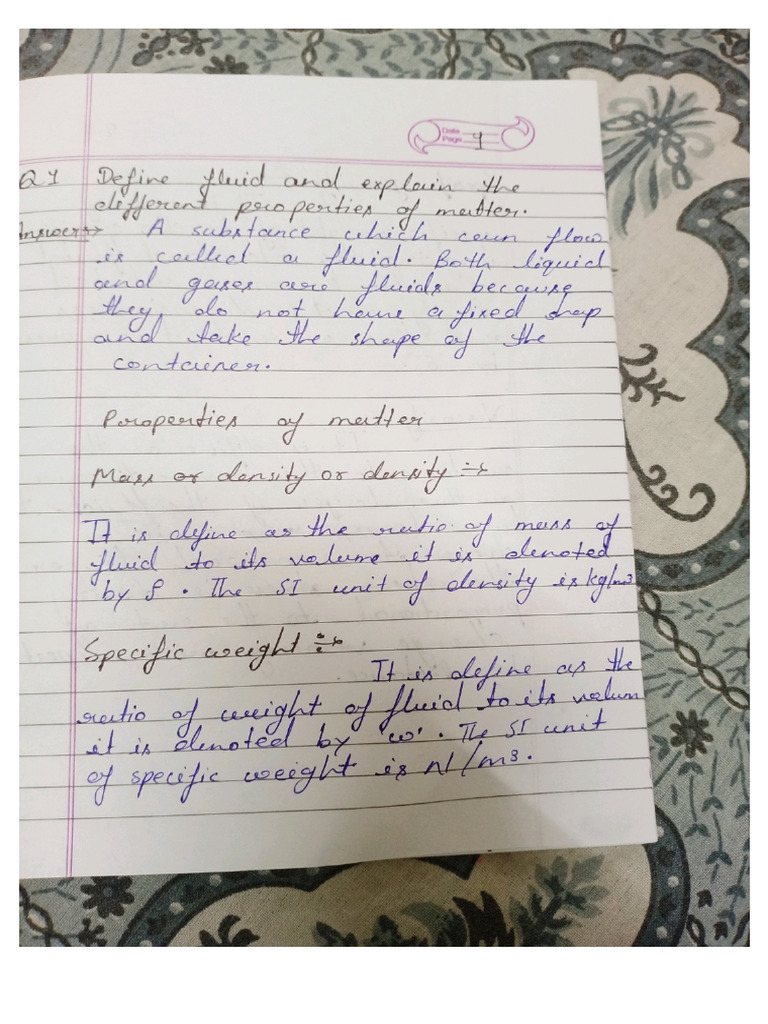 Date
Page 4
Q1 Define fluid and explain the
different properties of matter.
Answer:→ A substance which can flow
is called a fluid. Both liquid
and gases are fluids because
they, do not have a fixed shap
and take the shape of the
container.
Properties of matter
Mass or density or density :-
It is define as the ratio of mass of
fluid to its volume it is denoted
by ρ. The SI unit of density is kg/m³
Specific weight :-
It is define as the
ratio of weight of fluid to its volum
it is denoted by 'w'. The SI unit
of specific weight is N/m³.